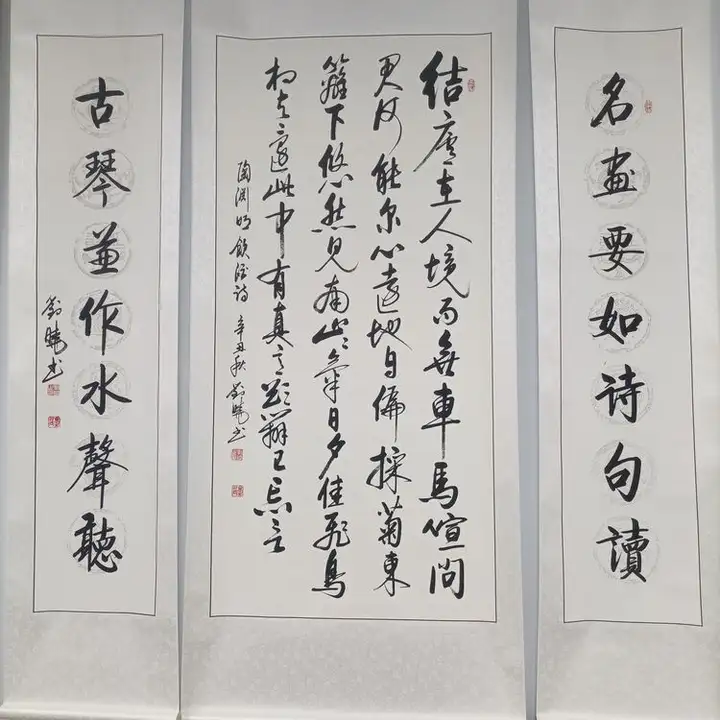 名畫要如诗句讀
结廬在人境而無車馬喧問
君何能尔心遠地自偏採菊東
籬下悠然見南山々氣日夕佳飛鳥
相与還此中有真意欲辯已忘言
陶淵明飲酒诗 辛丑秋 劉曉书
古琴兼作水聲聽
劉曉书